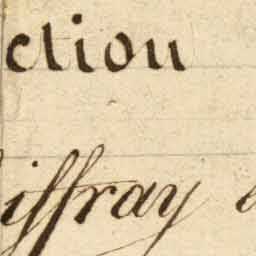 ction
iffray